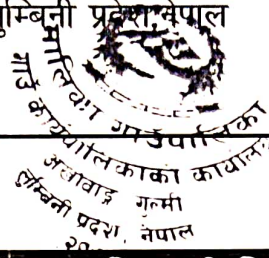 म्बिनी प्रदेश, नेपाल
मालिका गाउँपालिका
गाउँ कार्यपालिकाको कार्याल
अर्जावाङ्ग गुल्मी
लुम्बिनी प्रदेश, नेपाल